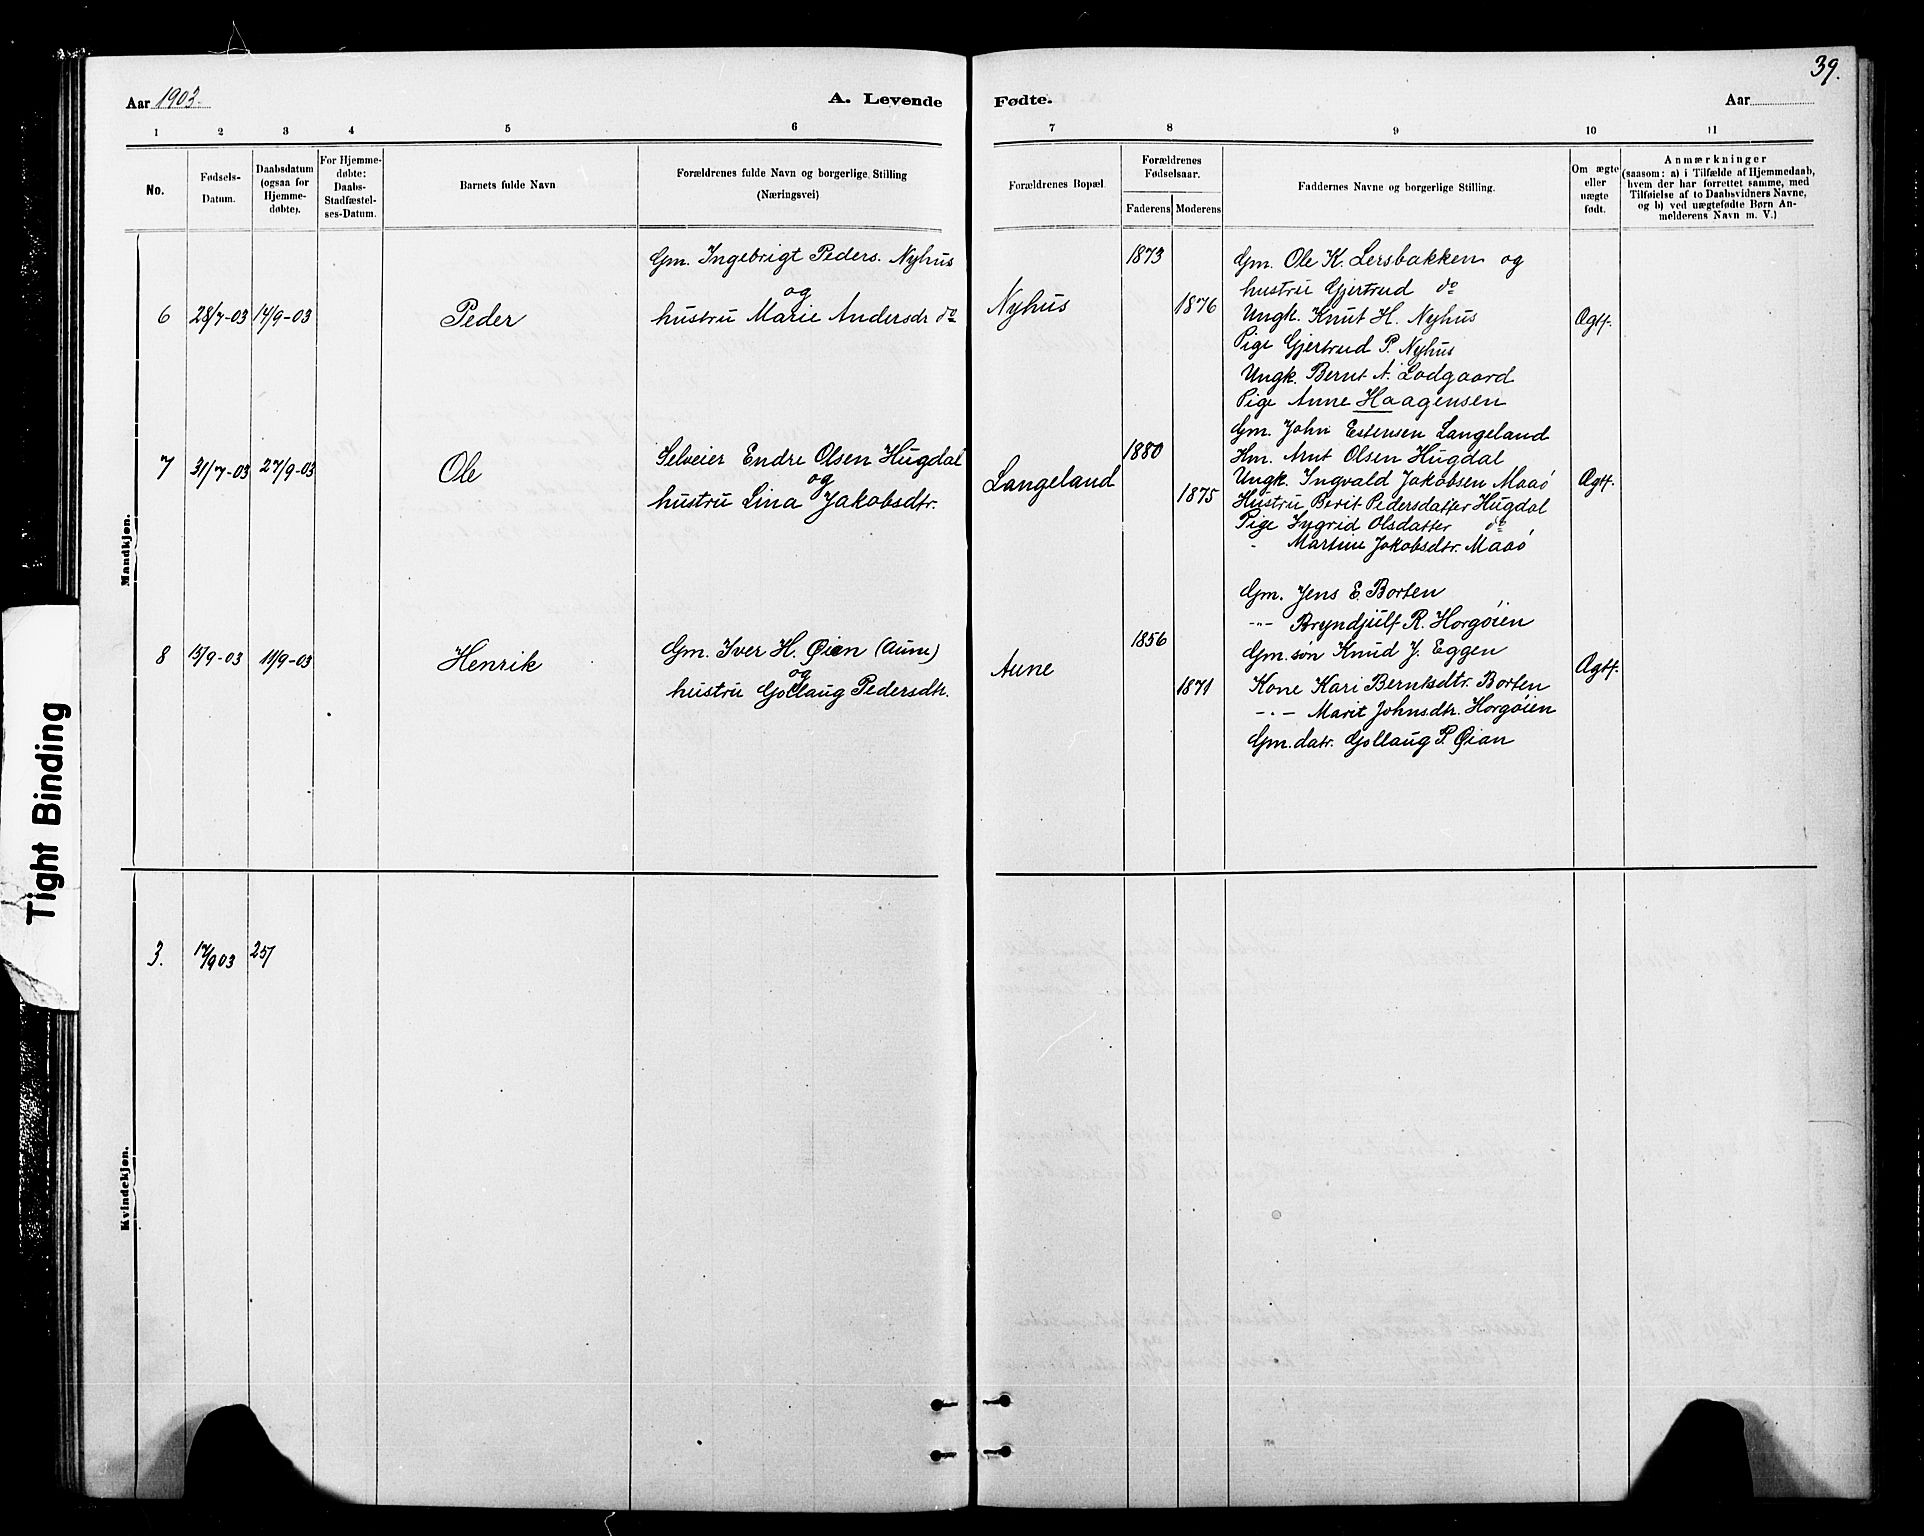 39.
Aar 1903.
A. Levende
Fødte.
Aar
1 2 3 4 5 6
7 8 9 10 11
No.
Fødsels-
Datum.
Daabsdatum
(ogsaa for
Hjemme-
døbte).
For Hjemme-
døbte:
Daabs-
Stadfæstel-
ses-Datum.
Barnets fulde Navn
Forældrenes fulde Navn og borgerlige Stilling
(Næringsvei)
Forældrenes Bopæl.
Forældrenes
Fødselsaar.
Faderens
Moderens
Faddernes Navne og borgerlige Stilling.
Om ægte
eller
uægte
født.
Anmærkninger
(saasom: a) i Tilfælde af Hjemmedaab,
hvem der har forrettet samme, med
Tilføielse af to Daabsvidners Navne,
og b) ved uægtefødte Børn An-
melderens Navn m. V.)
Mandkjøn.
6
28/7-03
14/9-03
Peder
Gm. Ingebrigt Peders. Nyhus
og
hustru Marie Andersdr do
Nyhus
1873
1876
Gm. Ole K. Lersbakken og
hustru Gjertrud do
Ungk. Knut H. Nyhus
Pige Gjertrud P. Nyhus
Ungk. Bernt A. Lodgaard
Pige Anne Haagensen
Ægtf.
7
31/7-03
27/9-03
Ole
Selveier Endre Olsen Hugdal
og
hustru Lina Jakobsdtr.
Langeland
1880
1875
Gm. John Estensen Langeland
Hm. Arnt Olsen Hugdal
Ungk. Ingvald Jakobsen Maaø
Hustru Berit Pedersdatter Hugdal
Pige Ingrid Olsdatter do
" Martine Jakobsdtr. Maaø
Ægtf.
8
13/9-03
11/9-03
Henrik
Gm. Iver H. Øien (Aune)
og
hustru Gollaug Pedersdtr.
Aune
1856
1871
Gm. Jens E. Borten
-"- Bryndjulf R. Horgøien
Gm. søn Knud J. Eggen
Kone Kari Berntsdtr. Borten
-"- Marit Johnsdtr. Horgøien
Gm. datr. Gollaug P. Øian
Ægtf.
Kvindekjøn.
3.
17/9 03
25/
Tight Binding